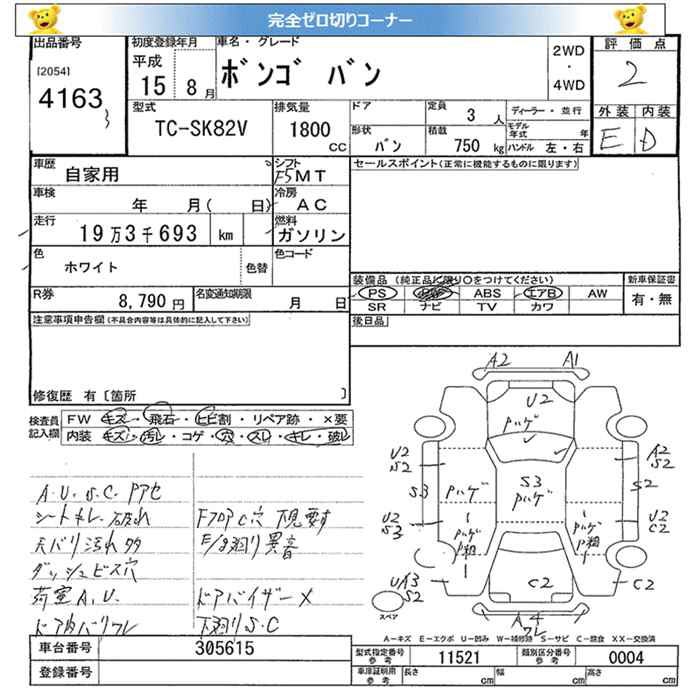 完全ゼロ切りコーナー
出品番号 [2054] 4163
初度登録年月 平成 15 年 8 月
車名・グレード ボンゴ バン
2WD ・ 4WD
評価点 2
外装 E 内装 D
型式 TC-SK82V
排気量 1800 CC
ドア 形状 バン
定員 3 人
積載 750 kg
ディーラー・並行
モデル年式 年
ハンドル 左・右
車歴 自家用
シフト F5 MT
セールスポイント(正常に機能するものに限ります)
車検 年 月( 日)
冷房 AC
走行 19万3千693 km
燃料 ガソリン
色 ホワイト 色替
色コード
装備品 (純正品に限り○をつけてください)
新車保証書 有・無
PS ABS エアB AW
SR ナビ TV カワ
R券 8,790 円
名変通知期限 月 日
後日品
注意事項申告欄(不具合内容等は具体的に記入して下さい)
修復歴 有 [箇所 ]
検査員記入欄
FW キズ・飛石・ヒビ割・リペア跡・×要
内装 キズ・汚レ・コゲ・穴・スレ・キレ・破レ
A.U.S.C. Pアセ
シートキレ 破れ
天バリ汚れ多
ダッシュビス穴
荷室A.U.
ドア内バリワレ
FフロアC穴 下見要す
E/g廻り異音
ドアバイザー×
下廻りS.C
A2 A1
U2
Pハゲ
U2 S2
A2 S2
S3 Pハゲ
S3 Pハゲ
S2
U2 S3
Pハゲ P粗
Pハゲ P粗
U2 C2
UA3 S2
C2
C2
スペア
A4 ワレ
A－キズ E－エクボ U－凹み W－補修跡 S－サビ C－腐食 XX－交換済
車台番号 305615
登録番号
型式指定番号 参考 11521
類別区分番号 参考 0004
車庫証明用 参考 長さ cm 幅 cm 高さ cm